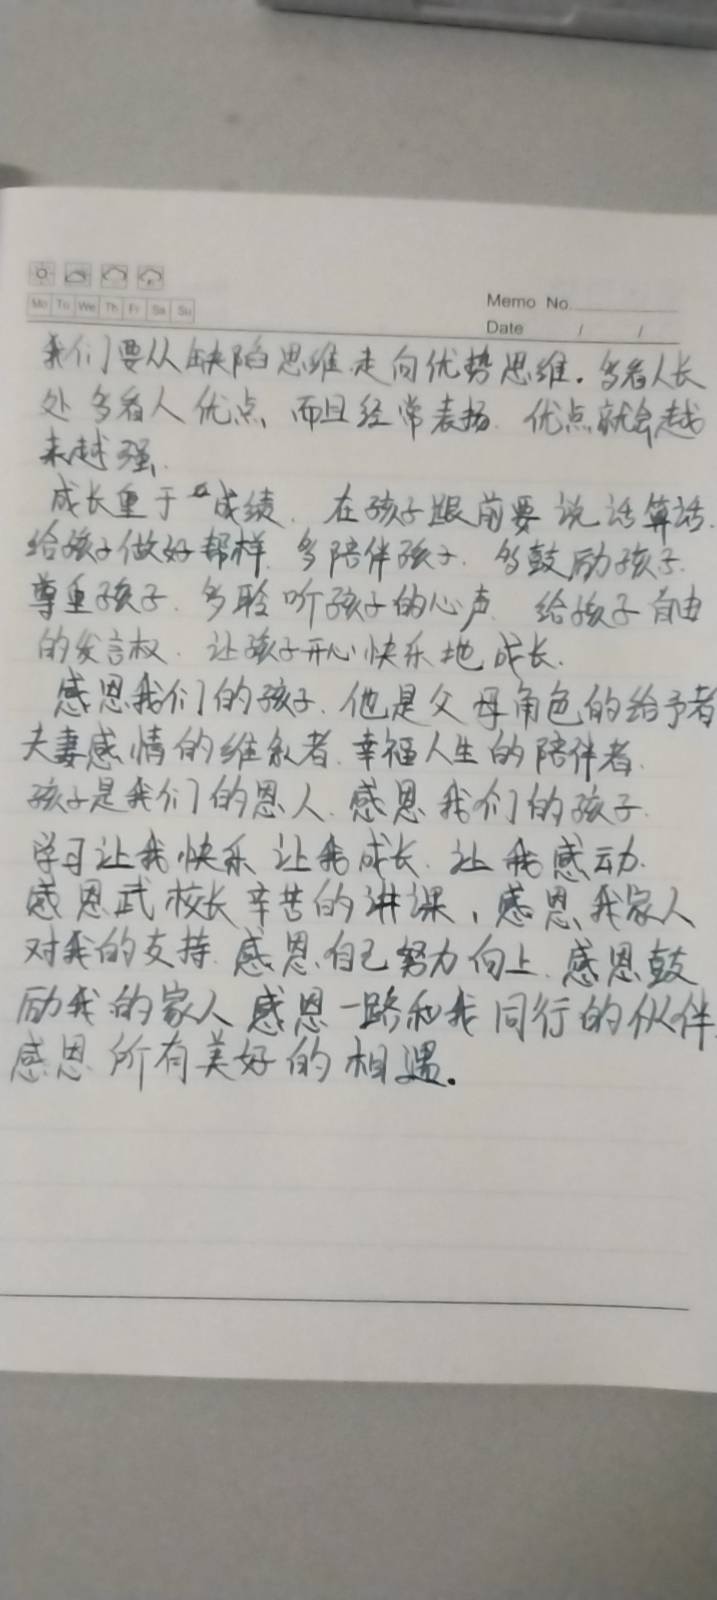 Mo Tu We Th Fr Sa Su
Memo No.
Date / /
我们要从缺陷思维走向优势思维. 多看人长
处 多看人优点, 而且经常表扬. 优点就会越
来越强,
成长重于成绩. 在孩子跟前要说话算话.
给孩子做好帮样. 多陪伴孩子. 多鼓励孩子.
尊重孩子. 多聆听孩子的心声. 给孩子自由
的发言权. 让孩子开心快乐地成长.
感恩我们的孩子. 他是父母角色的给予者
夫妻感情的维系者. 幸福人生的陪伴者.
孩子是我们的恩人. 感恩我们的孩子.
学习让我快乐 让我成长. 让我感动.
感恩武校长辛苦的讲课, 感恩我家人
对我的支持. 感恩自己努力向上. 感恩鼓
励我的家人 感恩一路和我同行的伙伴.
感恩所有美好的相遇.